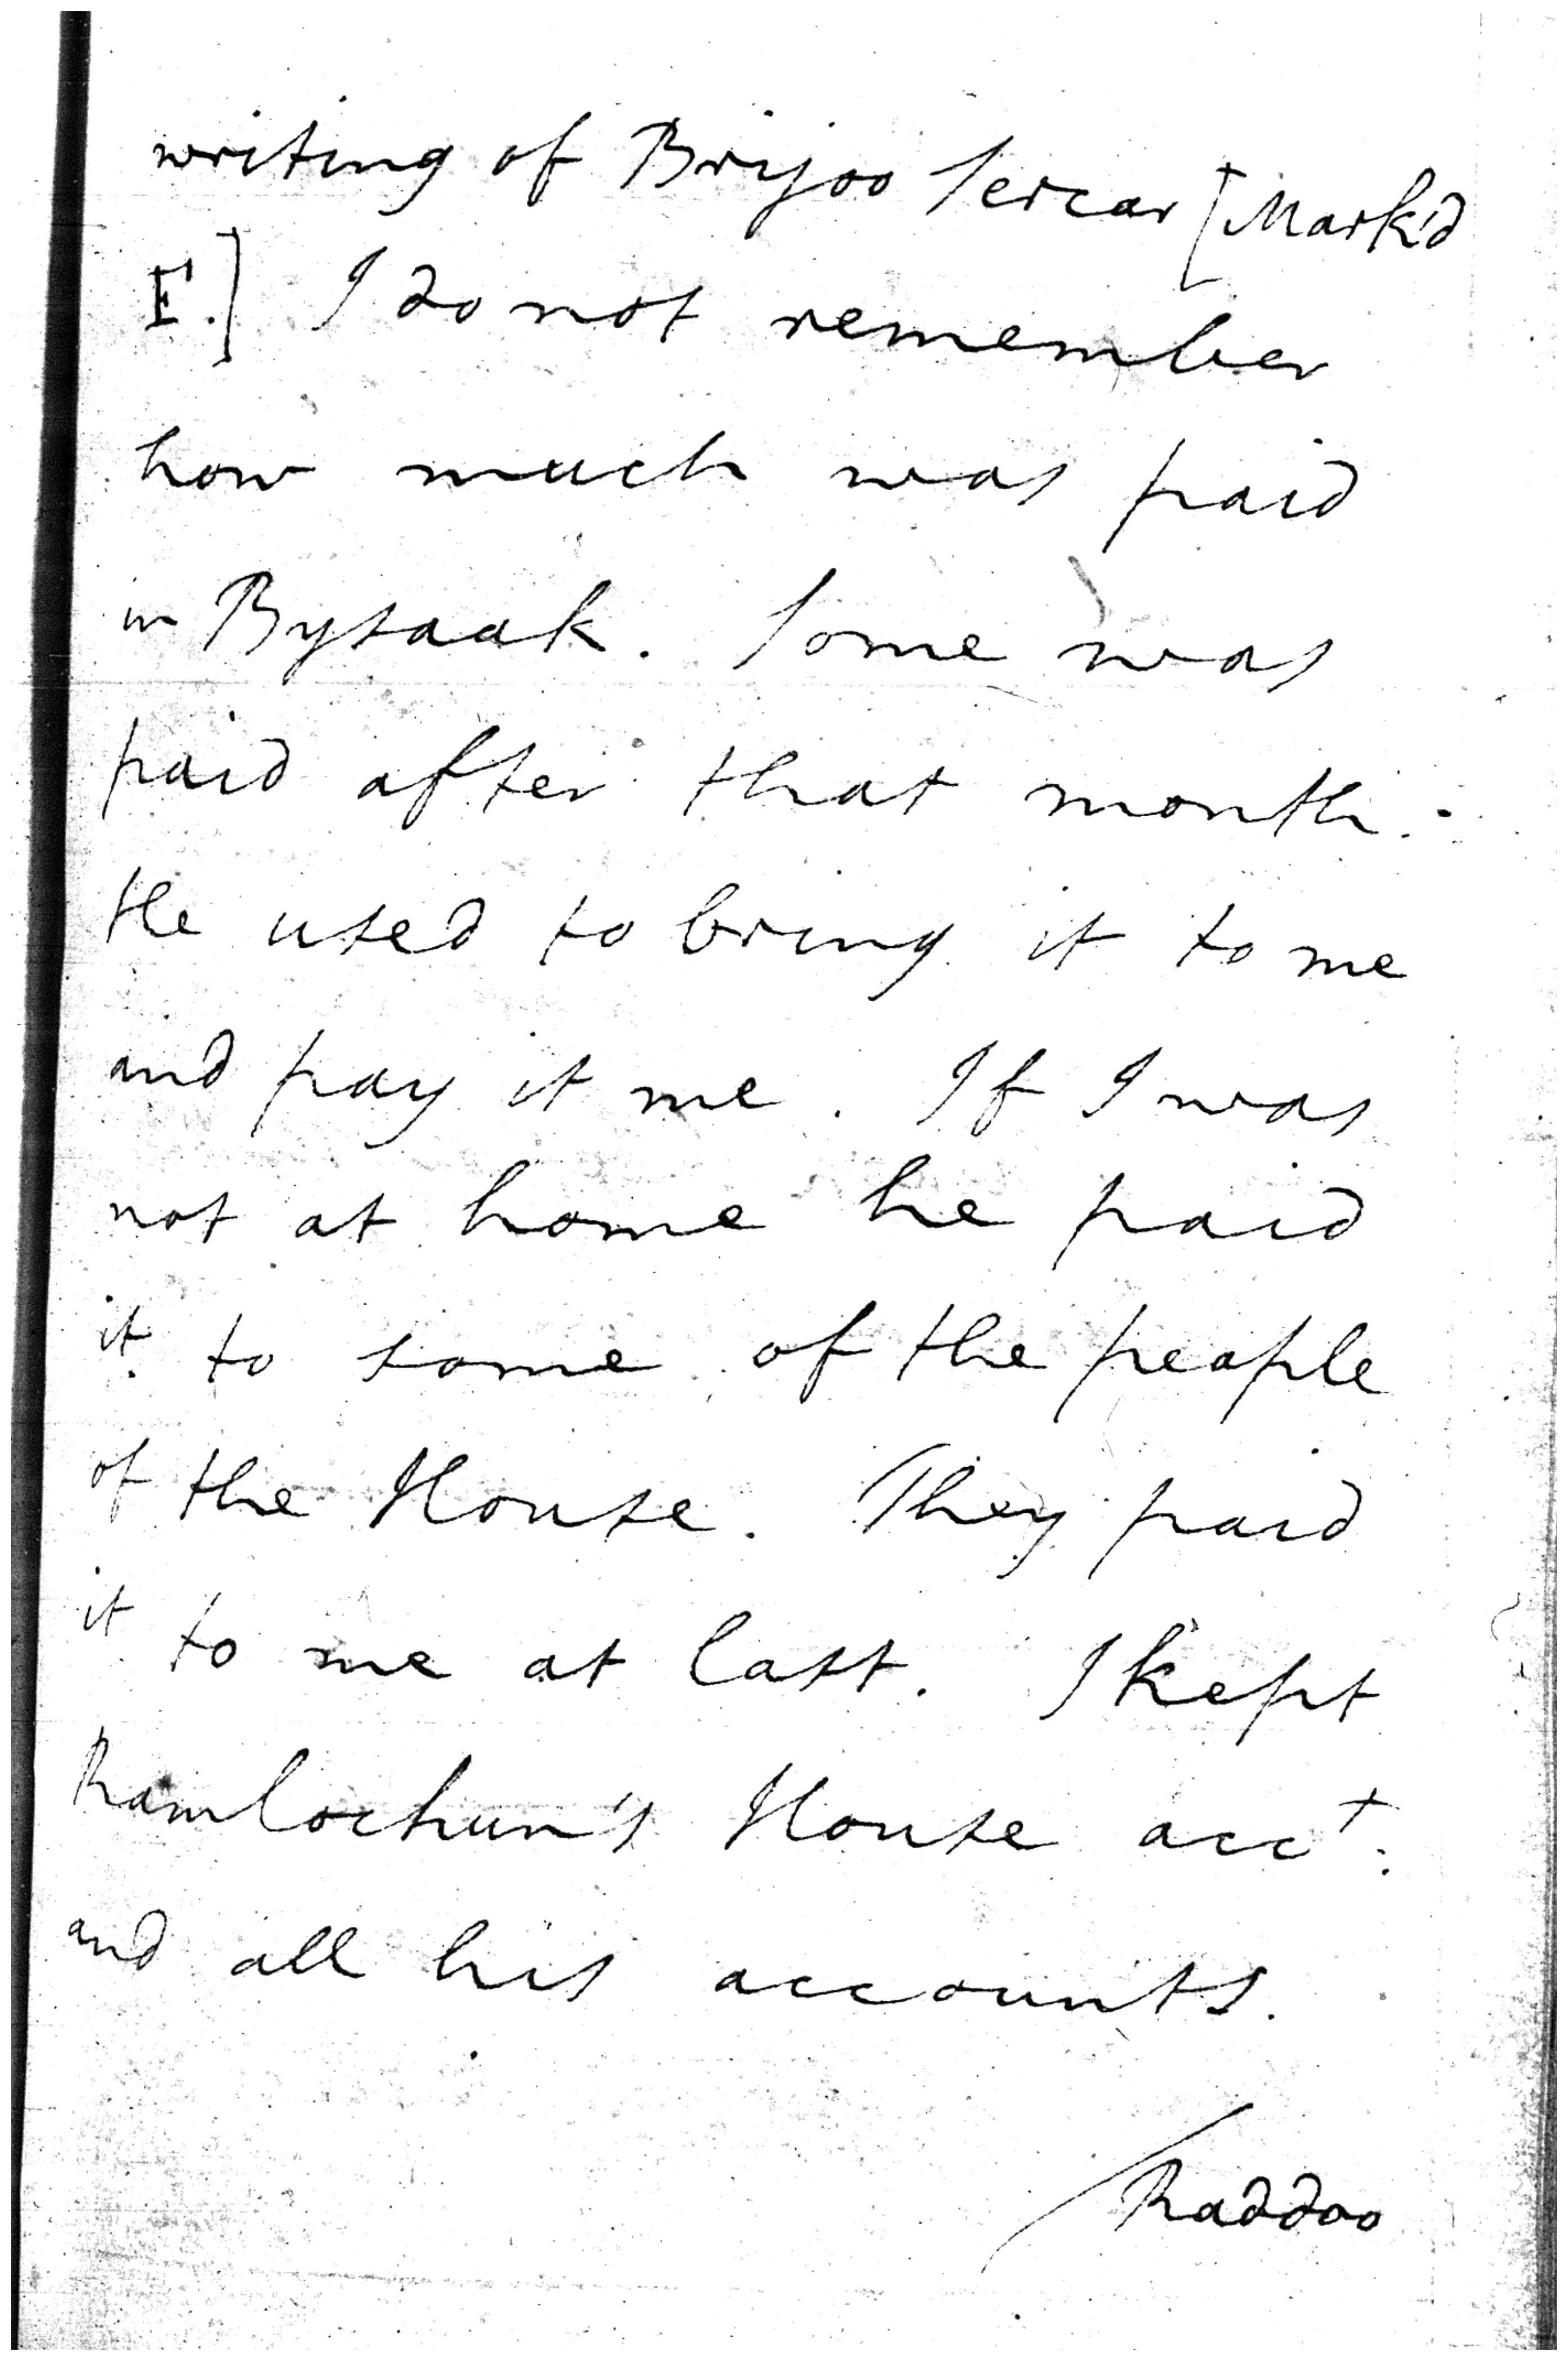 writing of Brijoo Sercar [Mark'd
E.] I do not remember
how much was paid
in Bysaak. Some was
paid after that month.
He used to bring it to me
and pay it me. If I was
not at home he paid
it to some of the people
of the House. They paid
it to me at last. I kept
Ramlochun's House acct.
and all his accounts.
Raddoo